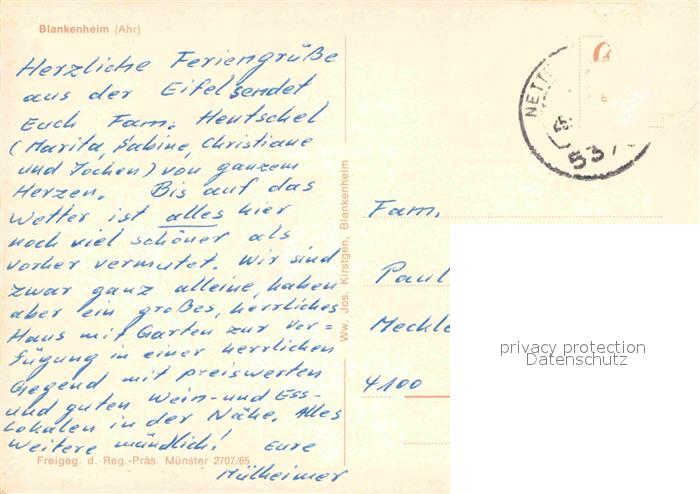 Blankenheim (Ahr)
Herzliche Feriengrüße
aus der Eifel sendet
Euch Fam. Hentschel
(Marita, Sabine, Christiane
und Jochen) von ganzem
Herzen. Bis auf das
Wetter ist alles hier
noch viel schöner als
vorher vermutet. Wir sind
zwar ganz alleine, haben
aber ein großes, herrliches
Haus mit Garten zur Ver=
fügung in einer herrlichen
Gegend mit preiswerten
und guten Wein- und Ess-
Lokalen in der Nähe. Alles
Weitere mündlich! Eure
Mülheimer
Freigeg. d. Reg.-Präs. Münster 2707/65
Ww. Jos. Kirstgen, Blankenheim
NETT
537
Fam.
Paul
Meckle
4100
privacy protection
Datenschutz